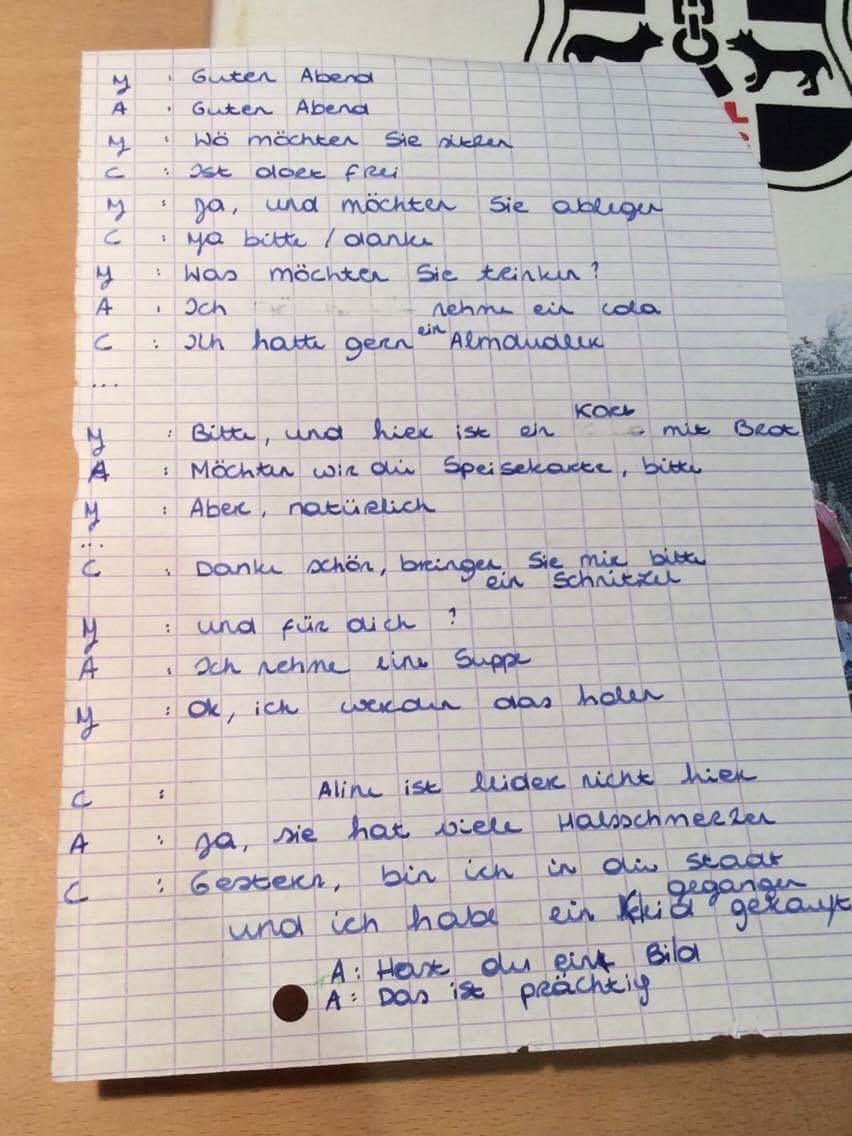 M : Guten Abend
A : Guten Abend
M : Wö möchten Sie sitzen
C : Ist dort frei
M : Ja, und möchten Sie ablegen
C : Ya bitte / danke
M : Was möchten Sie trinken?
A : Ich nehme ein cola
C : Ich hatte gern ein Almdudler
...
M : Bitte, und hier ist ein Korb mit Brot
A : Möchten wir die Speisekarte, bitte
M : Aber, natürlich
...
C : Danke schön, bringen Sie mir bitte
ein Schnitzel
M : und für dich ?
A : Ich nehme eine Suppe
M : Ok, ich werden das holen
C : Aline ist leider nicht hier
A : Ja, sie hat viele Halsschmerzen
C : Gestern, bin ich in die Stadt
gegangen
und ich habe ein Kleid gekauft
A : Hast du ein Bild
A : Das ist prächtig